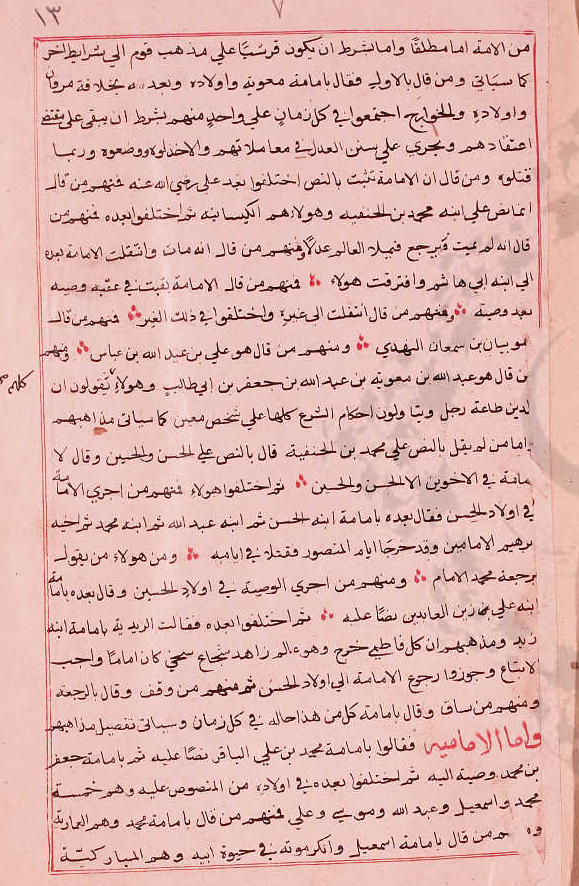 ٧
١٣
من الامة اما مطلقًا واما بشرط ان يكون قرشيًا على مذهب قوم الى شرايط اخر
كما سياتى ومن قال بالاول فقال بامامة معوية واولاده وبعده بخلافة مروان
واولاده والخوارج اجتمعوا في كل زمان على واحد منهم بشرط ان يبقى على مقتضى
اعتقادهم ويجري على سنن العدل في معاملاتهم والا خذلوه ووضعوه وربما
قتلوه ومن قال ان الامامة تثبت بالنص اختلفوا بعد على رضى الله عنه فمنهم من قال
انما نص على ابنه محمد بن الحنفيه وهولاء هم الكيسانيه ثم اختلفوا بعده فمنهم من
قال انه لم يمت ويرجع فيملا العالم عدلا ومنهم من قال انه مات وانتقلت الامامة بعده
الى ابنه ابى هاشم وافترقت هولاء فمنهم من قال الامامة بقيت في عقبه وصيه
بعد وصية ومنهم من قال انتقلت الى غيره واختلفوا في ذلك الغير فمنهم من قال
هو بيان بن سمعان النهدي ومنهم من قال هو على بن عبد الله بن عباس ومنهم
من قال هو عبد الله بن معوية بن عبد الله بن جعفر بن ابى طالب وهولاء يقولون ان
كلهم
لدين طاعة رجل ويتاولون احكام الشرع كلها على شخص معين كما سياتى مذاهبهم
واما من لم يقل بالنص على محمد بن الحنفية قال بالنص على الحسن والحسين وقال لا
مامة في الاخوين الا الحسن والحسين ثم اختلفوا هولاء فمنهم من اجرى الامامة
في اولاد الحسن فقال بعده بامامة ابنه الحسن ثم ابنه عبد الله ثم ابنه محمد ثم اخيه
برهيم الامامين وقد خرجا ايام المنصور فقتلا في ايامه ومن هولاء من يقول
برجعة محمد الامام ومنهم من اجرى الوصية في اولاد الحسين وقال بعده بامامة
ابنه على بن زين العابدين نصًا عليه ثم اختلفوا بعده فقالت الزيدية بامامة ابنه
زيد ومذهبهم ان كل فاطمى خرج وهو عالم زاهد شجاع سخى كان اماما واجب
الاتباع وجوزوا رجوع الامامة الى اولاد الحسن ثم منهم من وقف وقال بالرجعة
ومنهم من ساق وقال بامامة كل من هذا حاله في كل زمان وسياتى تفصيل مذاهبهم
واما الامامية فقالوا بامامة محمد بن على الباقر نصًا عليه ثم بامامة جعفر
بن محمد وصية اليه ثم اختلفوا بعده في اولاده من المنصوص عليه وهم خمسة
محمد واسمعيل وعبد الله وموسى وعلي فمنهم من قال بامامة محمد وهم العمارية
ومنهم من قال بامامة اسمعيل وانكر موته في حيوة ابيه وهم المباركيّة